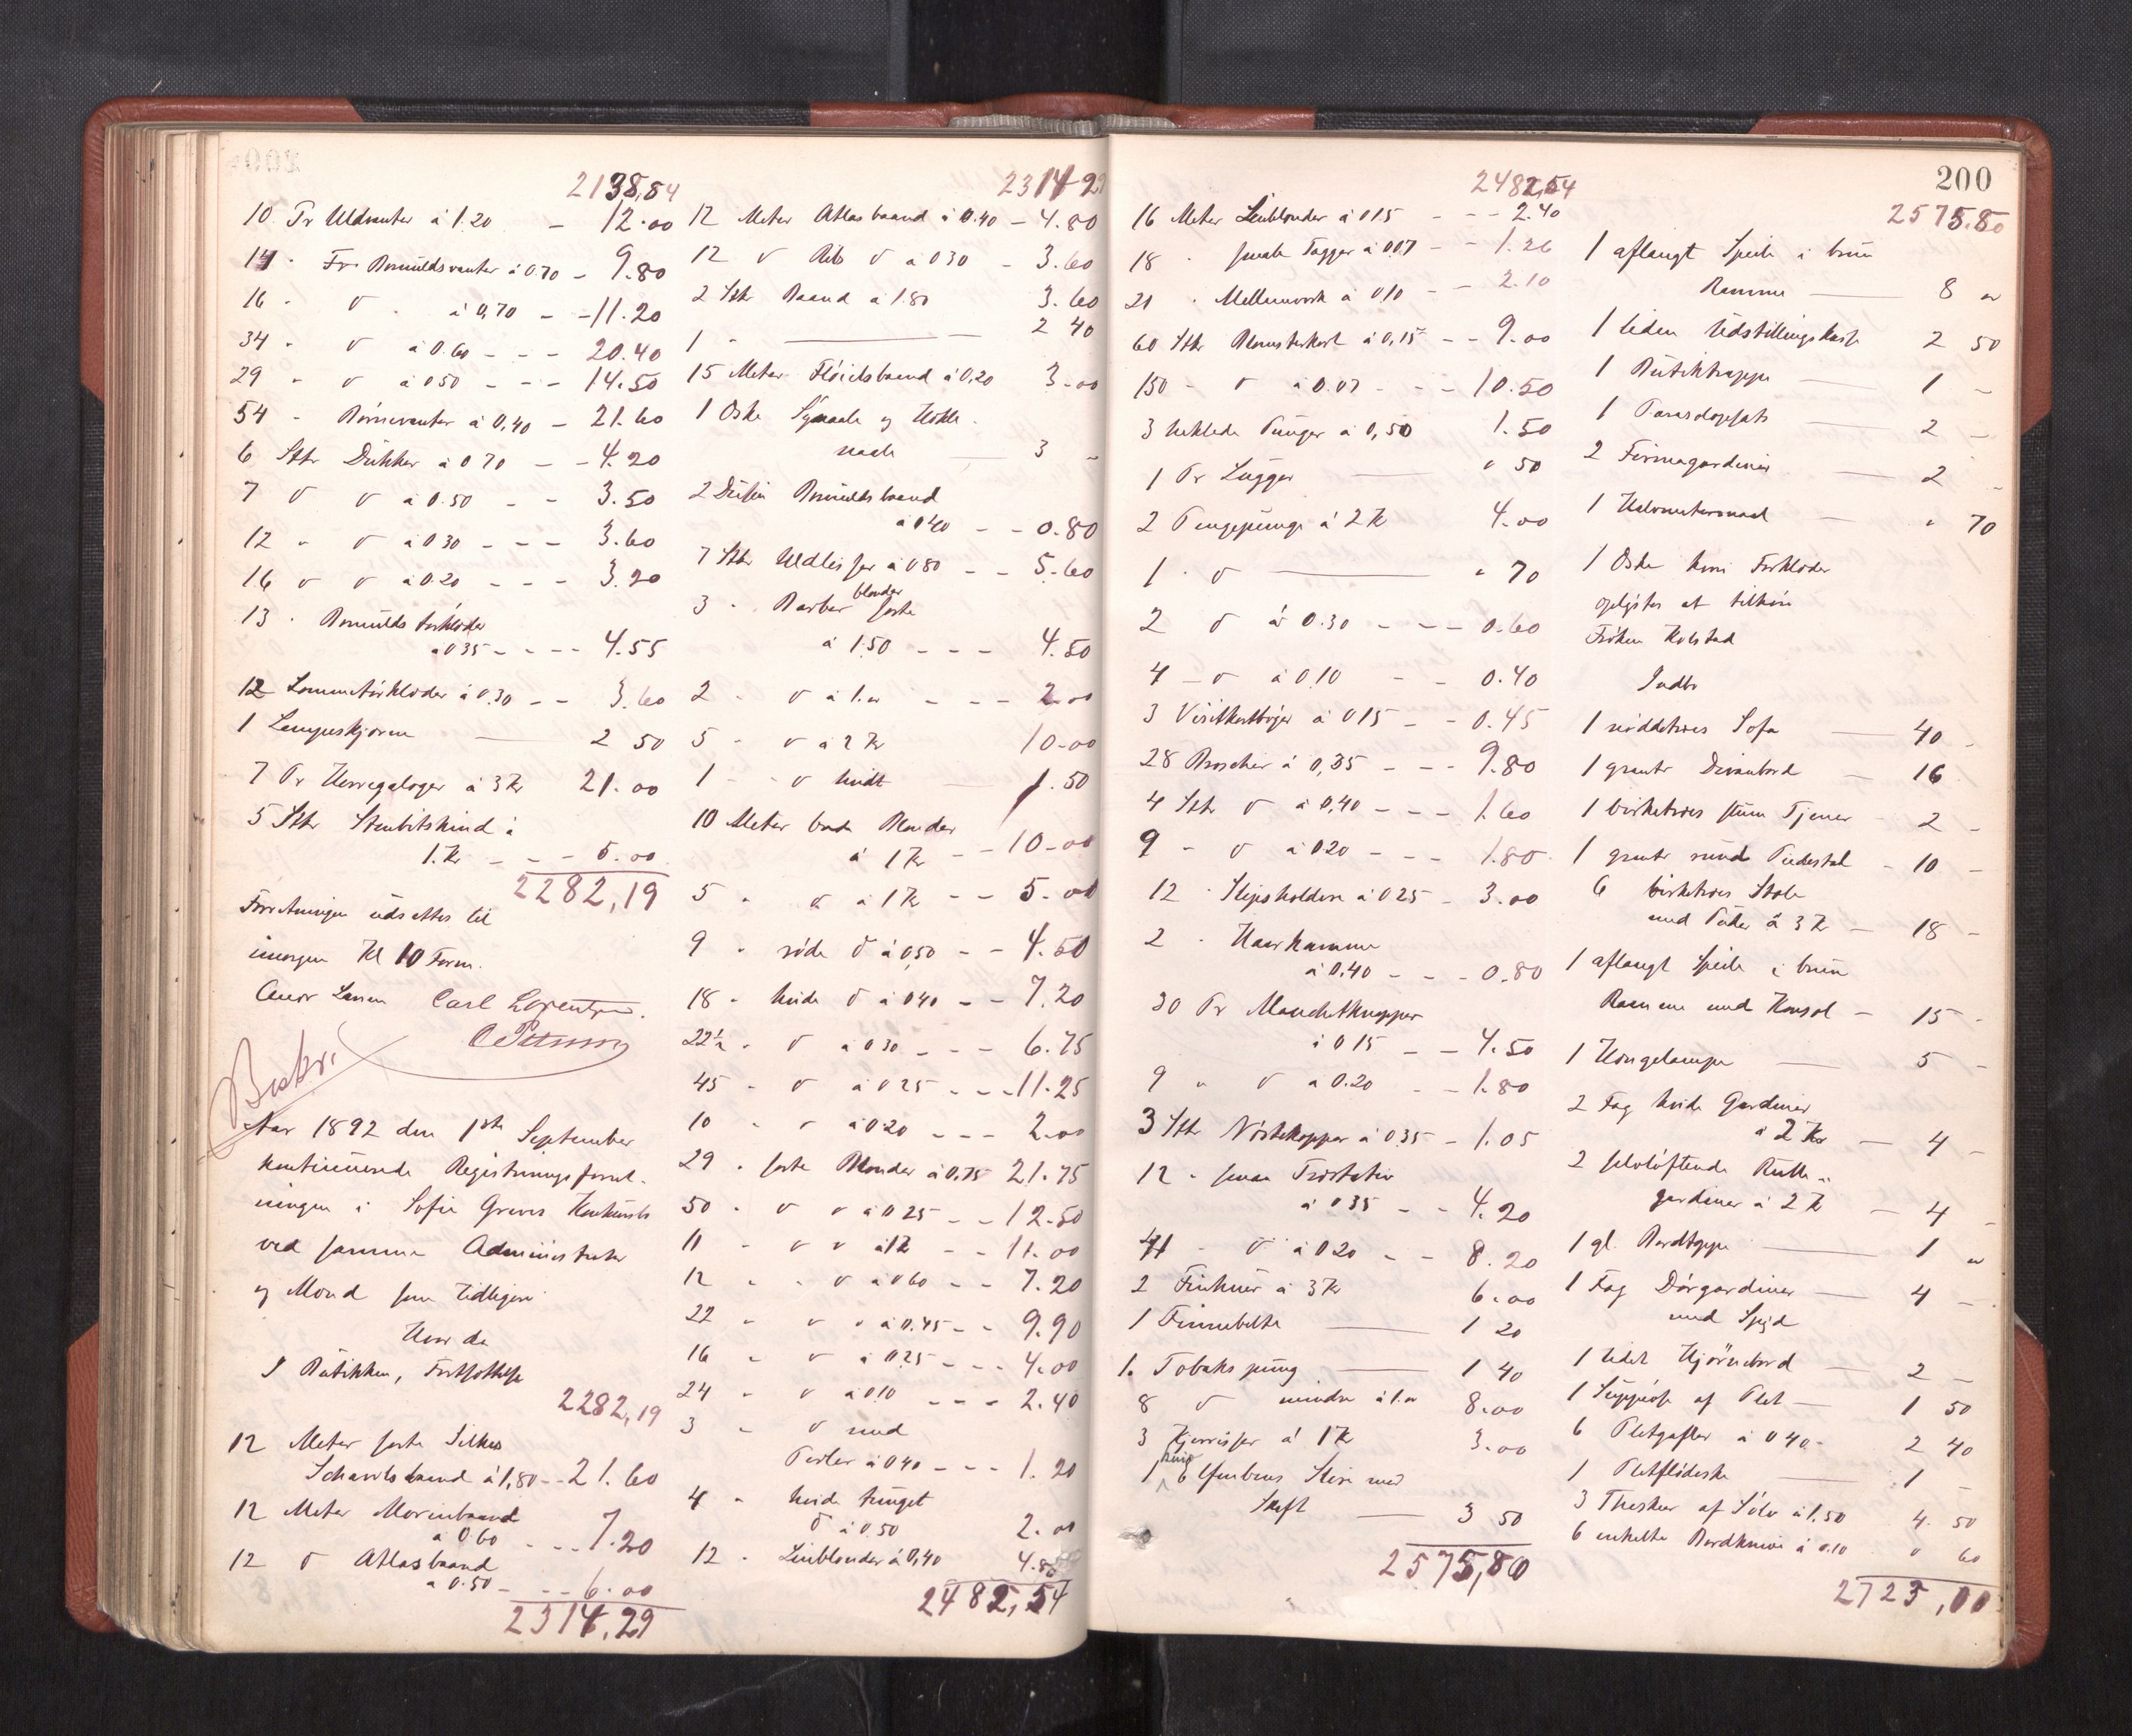 2138,54
10 Pr Uldvanter à 1.20 - 12.00
14 " Fr. Bomuldsvanter à 0.70 - 9.80
16 " d " à 0,70 - - 11.20
34 " d à 0.60 - - - 20.40
29 " d à 0.50 - - - 14.50
54 " Börnevanter à 0,40 - 21.60
6 Stkr Dukker à 0.70 - - 4.20
7 d d à 0.50 - - 3.50
12 " d à 0.30 - - - 3.60
16 d d à 0.20 - - - 3.20
13 " Bomulds forklæder
à 0.35 - - - - 4.55
12 Lommetörklæder à 0.30 - - 3.60
1 Lampeskjerm 2 50
7 Pr Herregaloger à 3 Kr 21.00
5 Stkr Stenbitskind à
1. Kr - - - 5.00
2282,19
Forretningen udsattes til
imorgen Kl 10 Form.
Carl Lorentzen
Beskr.
Aar 1892 den 1ste September
kontinuerede Registreringsforret-
ningen i Sofie Greves Konkursbo
ved samme Administrator
og Mænd som tidligere
Hvor da
I Butikken, Fortsættelse
2282,19
12 Meter sorte Silkes
Schawlsbaand à 1,80 - - 21.60
12 Meter Morinbaand
à 0.60 - - - 7.20
12 d Atlasbaand
à 0.50 - - - 6.00
2314,29
2314,29
12 Meter Atlasbaand à 0.40 - 4.80
12 d Rib d à 0.30 - 3.60
2 Stkr Baand à 1.80 3.60
1 " 2 40
15 Meter Flöielsbaand à 0,20 3.00
1 Öske Synaale og Hækle-
naale 3 -
2 Dusin Bomuldsbaand
à 0.40 - - 0.80
7 Stkr Uldlisser à 0.80 - - 5.60
3 " Barber blonder sorte
à 1.50 - - - 4.50
2 " d à 1.00 - - - 2.00
5 " d à 2 Kr 10.00
1 " d hvidt 1.50
10 Meter brede Blonder
à 1 Kr - - 10.00
5 " d à 1 Kr - - 5.00
9 " röde d à 0,50 - - 4.50
18 " hvide d à 0.40 - - 7.20
22½ " d à 0.30 - - - 6.75
45 " d à 0.25 - - - 11.25
10 " d à 0.20 - - - 2.00
29 " sorte Blonder à 0,75 21.75
50 " d d à 0.25 - - 12.50
11 " d d à 1 Kr - - 11.00
12 " " d à 0.60 - - 7.20
22 " d " à 0.45 - - 9.90
16 " d à 0.25 - - - 4.00
24 " d à 0.10 - - - 2.40
3 " d med
Perler à 0.40 - - - 1.20
4 " hvide tunget
d à 0.50 2.00
12 " Linblonder à 0,40 4.80
2482,54
200
2482,54
16 Meter Linblonder à 0.15 - - - 2.40
18 " smale Tagger à 0.07 - - 1.26
21 " Mellemverk à 0.10 - - 2.10
60 Stkr Blomsterkort à 0,15 - - 9.00
150 " d à 0.07 - - - 10.50
3 heklede Punger à 0,50 1.50
1 Pr Lugger " 50
2 Pengepunge à 2 Kr 4.00
1 " d " 70
2 d à 0.30 - - - 0.60
4 - d à 0.10 - - 0.40
3 Visitkortböger à 0.15 - - 0.45
28 Broscher à 0,35 - - - 9.80
4 Stkr d à 0,40 - - - 1.60
9 " d à 0.20 - - - 1.80
12 " Slipsholdere à 0.25 - 3.00
2 " Haarkamme
à 0.40 - - - 0.80
30 Pr Manchetknapper
à 0.15 - - 4.50
9 " d à 0.20 - - 1.80
3 Stkr Nöstekopper à 0.35 - 1.05
12 " smaa Træstativ
à 0.35 - - 4.20
41 " d à 0.20 - - 8.20
2 Finhuer à 3 Kr 6.00
1 Finnebelte 1 20
1 Tobakspung 1 40
8 d mindre à 1.00 8.00
3 à 1 Kr 3.00
med
Skaft 3 50
2575,80
2575.80
1 aflangt Speile i brun
Ramme 8 00
1 liden Udstillingskasse 2 50
1 Butiktrappe 1 -
1 Parasolopsats 2 -
2 Firmagardiner 2 -
1 Halvmetermaal " 70
1 Öske hvori Forklæder
oplystes at tilhöre
Fröken Kolstad
Indbo
1 nöddetræes Sofa 40 -
1 granetr Divanbord 16
1 birketræes stum Tjener 2 -
1 granetr rund Piedestal - 10 -
6 birketræes Stole
med Puder à 3 Kr - 18 -
1 aflangt Speile i brun
Ramme med Konsol - 15 -
1 Hængelampe 5 -
2 Fag hvide Gardiner
à 2 Kr - 4 -
2 selvlöftende Rulle-
gardiner à 2 Kr - 4 -
1 gl. Bordteppe 1 00
1 Fag Dörgardiner 4 -
med Spyd
1 lidet Hjörnebord 2 -
1 Suppeöse af Plet 1 50
6 Pletgafler à 0.40 - 2 40
1 Pletflödeske 1 -
3 Theskeer af Sölv à 1.50 4. 50
6 enkelte Bordknive à 0.10 " 60
2723,00